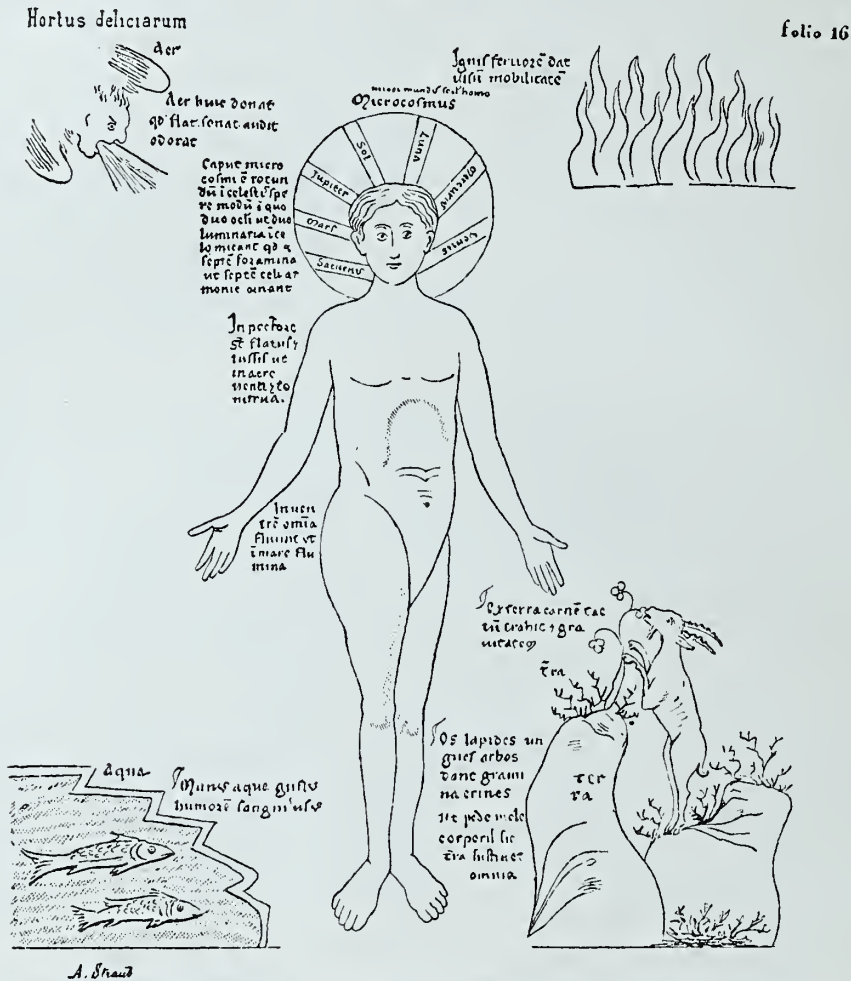 Hortus deliciarum
folio 16
aer
Aer huic donat
qd flat. sonat. audit
odorat
Ignis feruorē dat
uisū mobilitatē
minor mundus id est homo
Microcosmus
Saturnus
Mars
Jupiter
Sol
Luna
Mercurius
Venus
Caput micro
cosmi ē rotun
dū ī celestis spe
re modū ī quo
duo oculi ut duo
luminaria ī ce
lo micant qd &
septē foramina
ut septē celi ar
monie ornant
In pectore
st̄ flatus &
tussis ut
in aere
uenti & to
nitrua.
In uen
trē omīa
fluunt ut
ī mare flu
mina
Ex terra carnē tac
tū trahit & gra
uitatem
t̄ra
ter
ra
Os lapides un
gues arbos
dant grami
na crines
ut pede mole
corporis sic
t̄ra sustinet
omnia
aqua
Munus aque gustus
humorē sanguinis
A. Straub